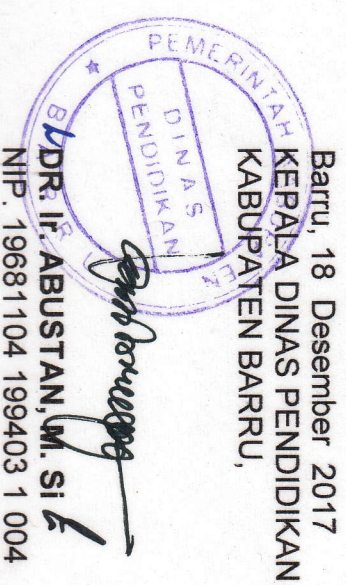 Barru, 18 Desember 2017
KEPALA DINAS PENDIDIKAN
KABUPATEN BARRU,
PEMERINTAH
DINAS
PENDIDIKAN
DR. Ir. ABUSTAN, M. Si
NIP. 19681104 199403 1 004